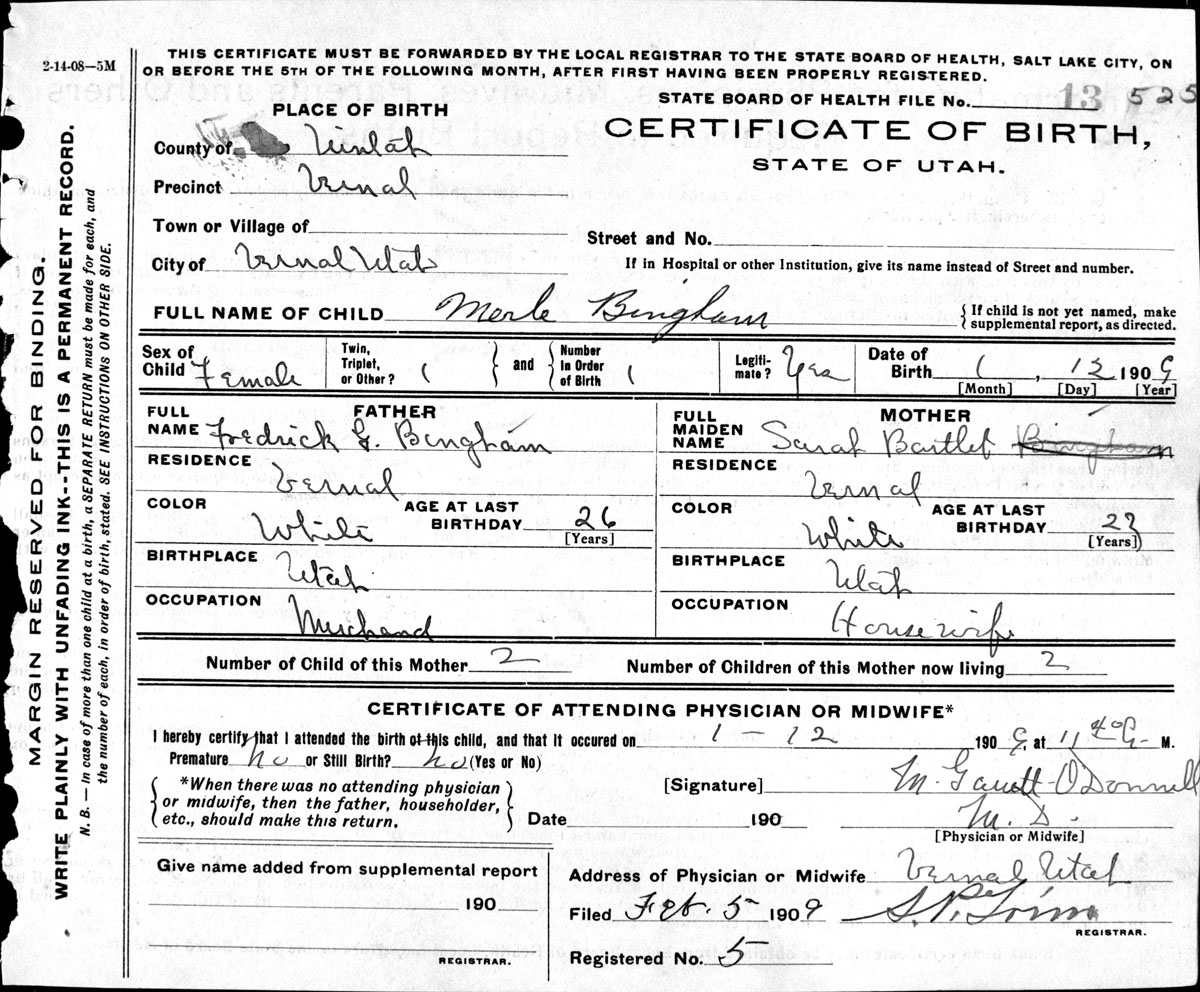 2-14-08—5M
THIS CERTIFICATE MUST BE FORWARDED BY THE LOCAL REGISTRAR TO THE STATE BOARD OF HEALTH, SALT LAKE CITY, ON
OR BEFORE THE 5TH OF THE FOLLOWING MONTH, AFTER FIRST HAVING BEEN PROPERLY REGISTERED.
STATE BOARD OF HEALTH FILE No. 13 525
PLACE OF BIRTH
CERTIFICATE OF BIRTH,
STATE OF UTAH.
County of
Precinct Vernal
Town or Village of
Street and No.
City of Vernal Utah
If in Hospital or other Institution, give its name instead of Street and number.
FULL NAME OF CHILD Merle Bingham { If child is not yet named, make
supplemental report, as directed.
Sex of Child Female Twin, Triplet, or Other? 1 and Number In Order of Birth 1 Legiti-mate? Yes Date of Birth 1 [Month], [Day] 1909 [Year]
FATHER
FULL NAME Fredrick G. Bingham
RESIDENCE Vernal
COLOR White AGE AT LAST BIRTHDAY 26 [Years]
BIRTHPLACE Utah
OCCUPATION
MOTHER
FULL MAIDEN NAME Sarah Bartlet Bingham
RESIDENCE Vernal
COLOR White AGE AT LAST BIRTHDAY [Years]
BIRTHPLACE Utah
OCCUPATION House wife
Number of Child of this Mother 2 Number of Children of this Mother now living 2
CERTIFICATE OF ATTENDING PHYSICIAN OR MIDWIFE*
I hereby certify that I attended the birth of this child, and that it occured on 1 - 12 1909, at M.
Premature No or Still Birth? No (Yes or No)
*When there was no attending physician
or midwife, then the father, householder,
etc., should make this return.
[Signature] M. Garrett O'Donnell
Date 190 M. D.
[Physician or Midwife]
Give name added from supplemental report
190
REGISTRAR.
Address of Physician or Midwife Vernal Utah
Filed Feb. 5 1909
REGISTRAR.
Registered No. 5
MARGIN RESERVED FOR BINDING.
WRITE PLAINLY WITH UNFADING INK--THIS IS A PERMANENT RECORD.
N. B. — In case of more than one child at a birth, a SEPARATE RETURN must be made for each, and
the number of each, in order of birth, stated. SEE INSTRUCTIONS ON OTHER SIDE.